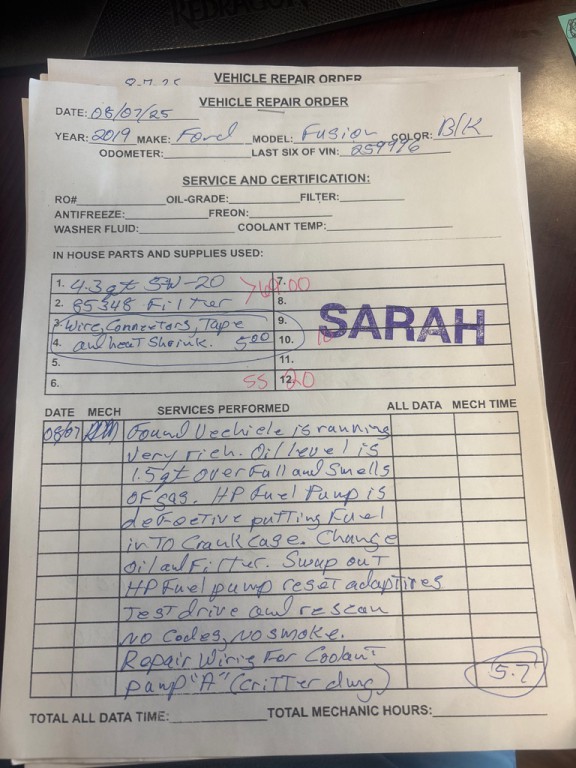 REDRAGON
8.7.25 VEHICLE REPAIR ORDER
VEHICLE REPAIR ORDER
DATE: 08/07/25
YEAR: 2019 MAKE: Ford MODEL: Fusion COLOR: BlK
ODOMETER: LAST SIX OF VIN: 259996
SERVICE AND CERTIFICATION:
RO# OIL-GRADE: FILTER:
ANTIFREEZE: FREON:
WASHER FLUID: COOLANT TEMP:
IN HOUSE PARTS AND SUPPLIES USED:
1. 4.3 qt 5W-20 7.
2. 85348 Filter 8.
3. Wire, Connectors, Tape 9.
4. and heat Shrink. 5.00 10.
SARAH
5. 11.
6. SS 12. 20
DATE MECH SERVICES PERFORMED ALL DATA MECH TIME
08/07 Found Vechicle is running
very rich. Oil level is
1.5 qt over full and Smells
of gas. HP Fuel Pump is
defective putting Fuel
in TO Crank case. Change
Oil and Filter. Swap out
HP Fuel pump reset adaptives
Test drive and rescan
NO Codes, NO smoke.
Repair Wiring For Coolant
pump "A" (critter dmg) 5.7
TOTAL ALL DATA TIME: TOTAL MECHANIC HOURS: